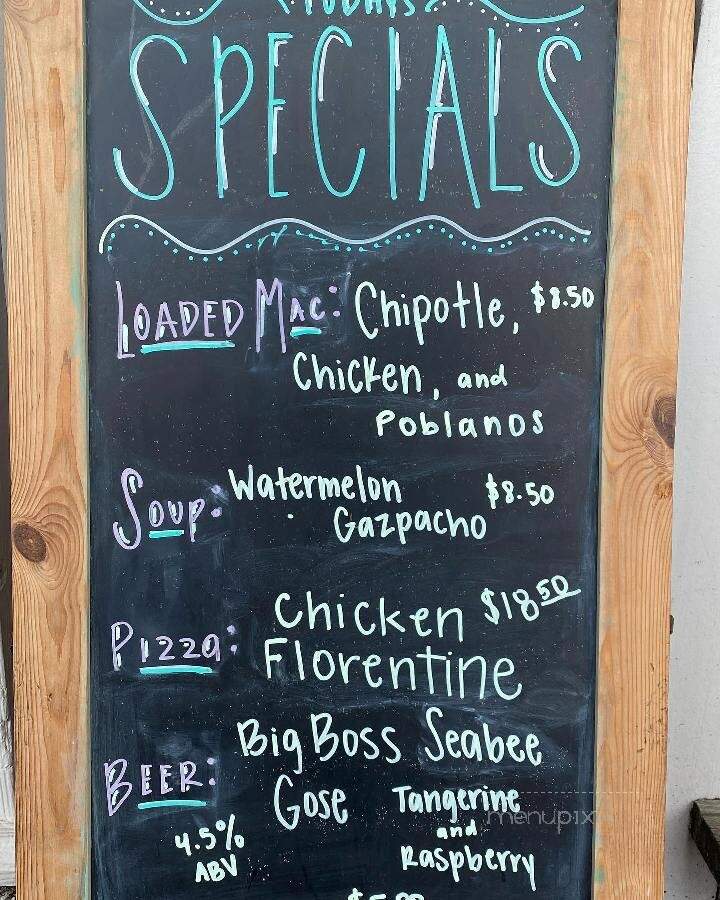 SPECIALS
LOADED MAC: Chipotle, $8.50
Chicken, and
Poblanos
SOUP: Watermelon $8.50
Gazpacho
PIZZA: Chicken $18.50
Florentine
BEER: Big Boss Seabee
Gose Tangerine
and
4.5% ABV Raspberry
menupix